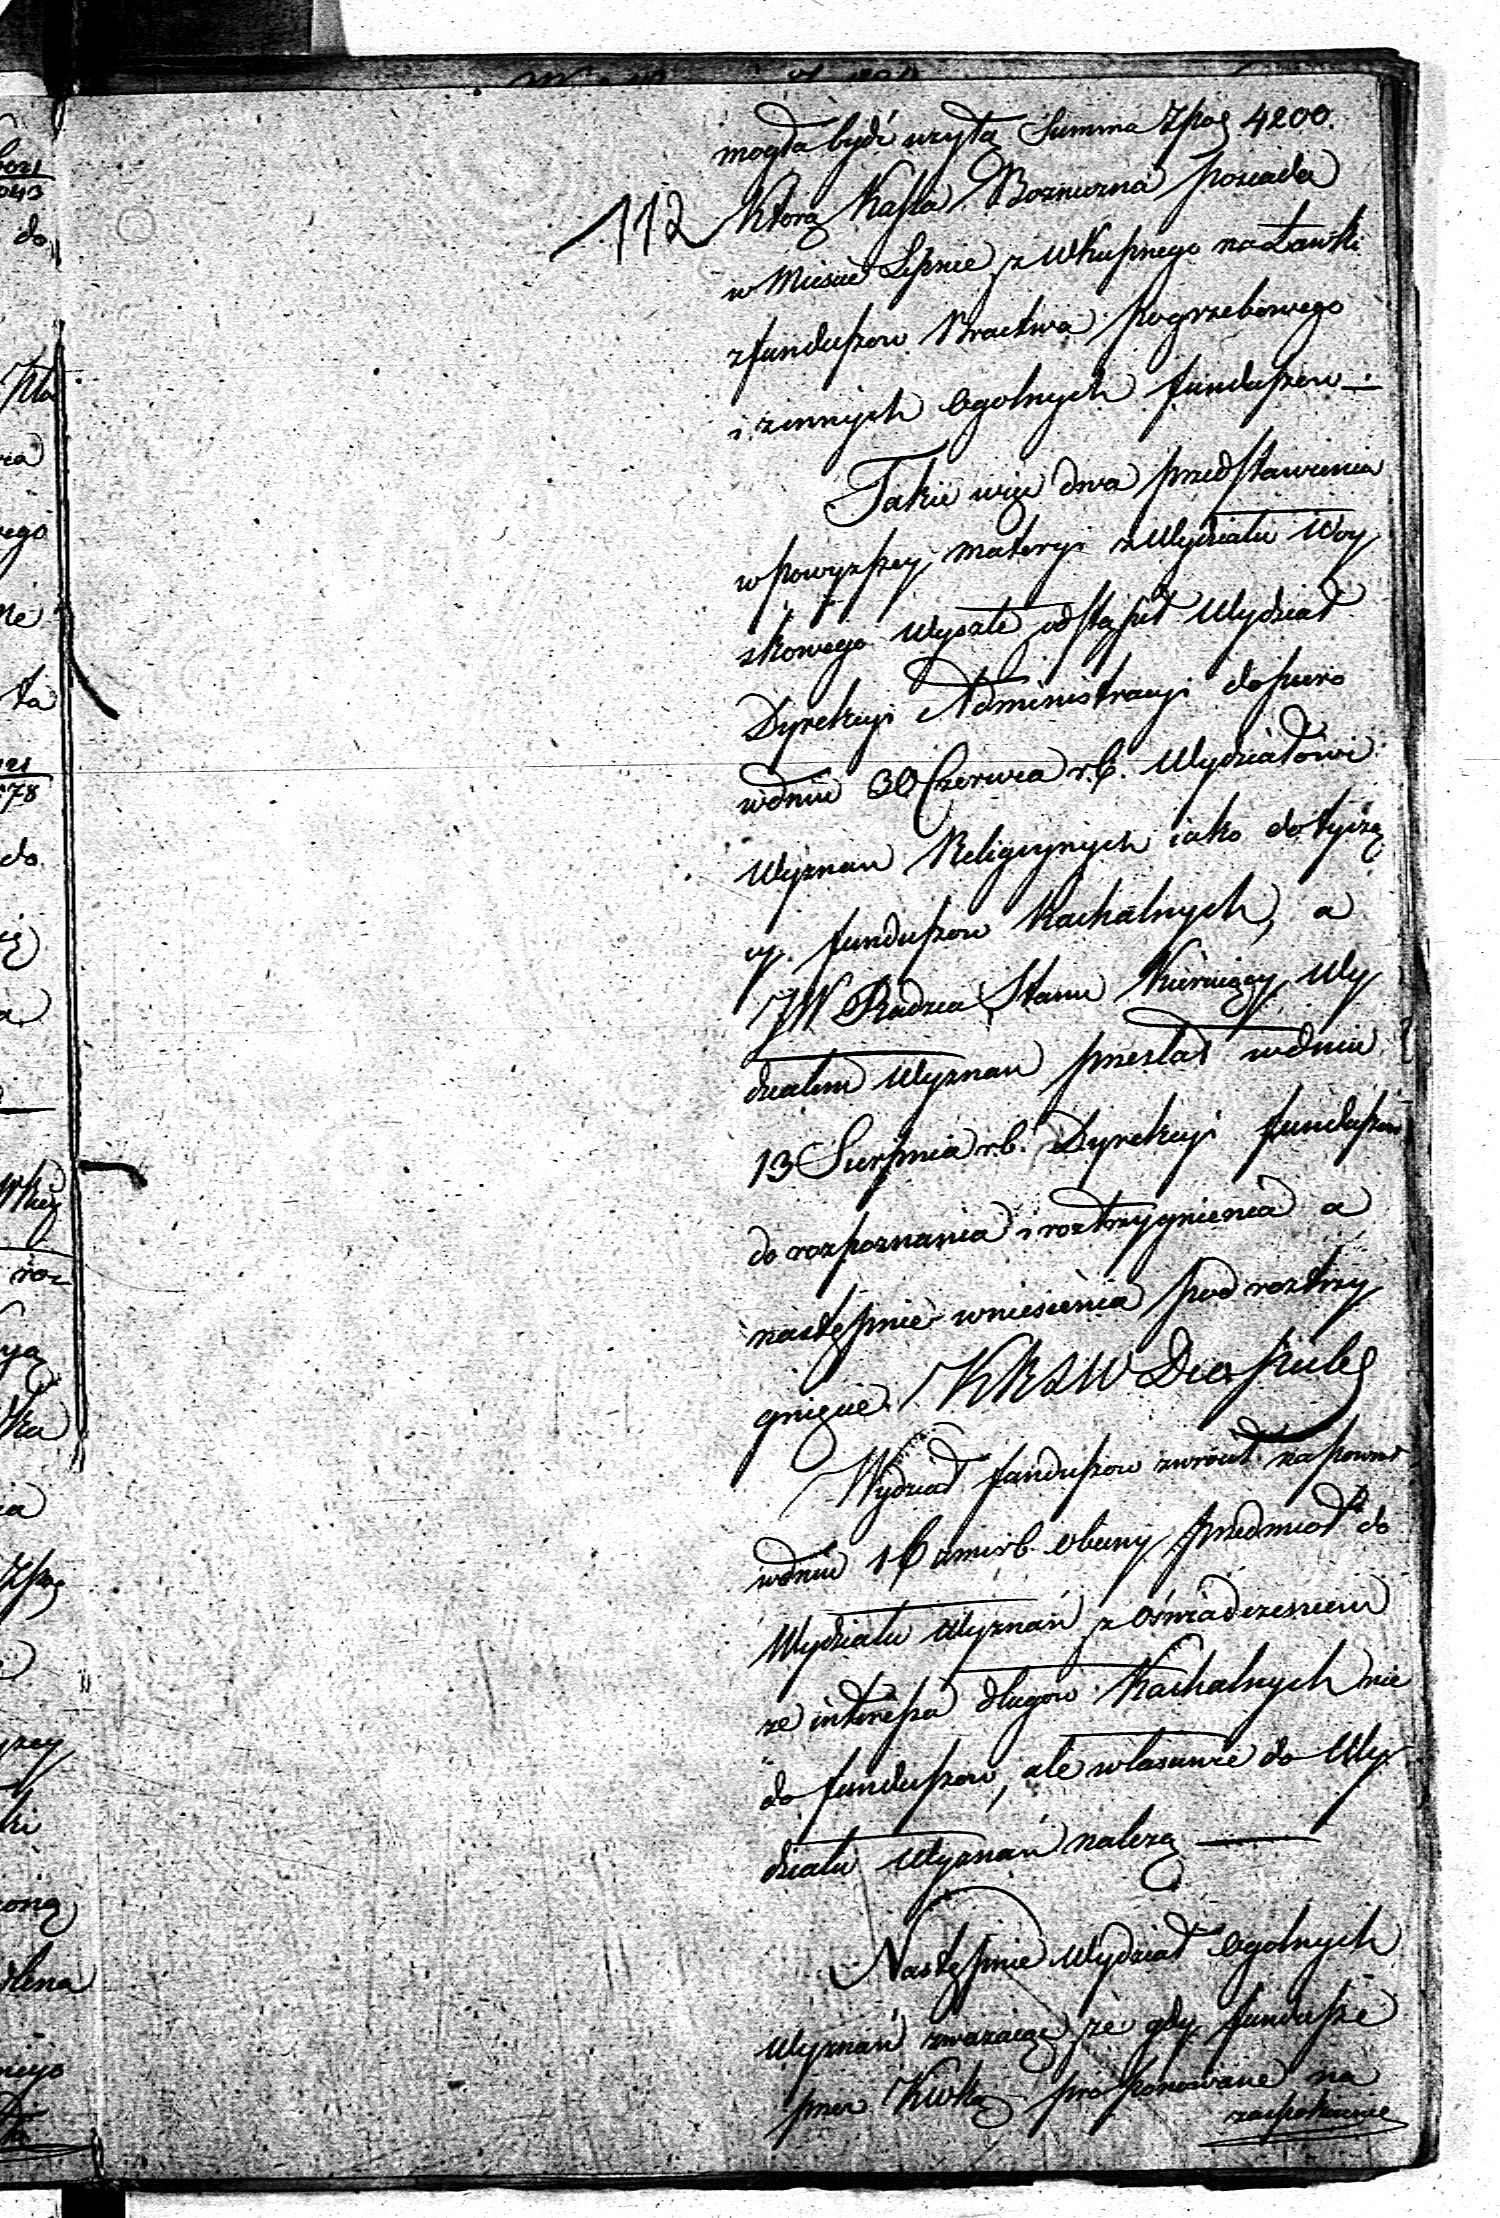 mogła bydź użytą Summa Zpog 4200.
112 Którą Kassa Boznicznà posiada
w Miescie Lipnie z Wkupnego na Ławki
z funduszow Bractwa pogrzebowego
i z innych Ogolnych funduszow —
Takie więc dwa przedstawienia
w powyzszey materyi z Wydziału Woy
skowego wyszłe odstąpił Wydział
Dyrekcyi Administracyi dopiero
w dniu 30 Czerwca r.b. Wydziałowi
Wyznan Religiynych iako dotyczą
cy funduszow Kachalnych, a
JW Radzca Stanu Kieruiący Wy
działem Wyznan przesłał w dniu
13 Sierpnia r.b. Dyrekcyi funduszow
do rozpoznania i roztrzygnienia a
następnie wniesienia pod roztrzy
gnięcie KRSW
Wydział funduszow zwrócił napowrot
w dniu 16 b. obecny przedmiot do
Wydziału Wyznań z Oświadczeniem
ze interessa długow Kachalnych nie
do funduszow, ale własciwie do Wy
działu Wyznań nalezą —
Następnie Wydział Ogolnych
Wyznań zwazaiąc ze gdy fundusze
przez KWką proponowane na
zaspokoienie
do
do
roz